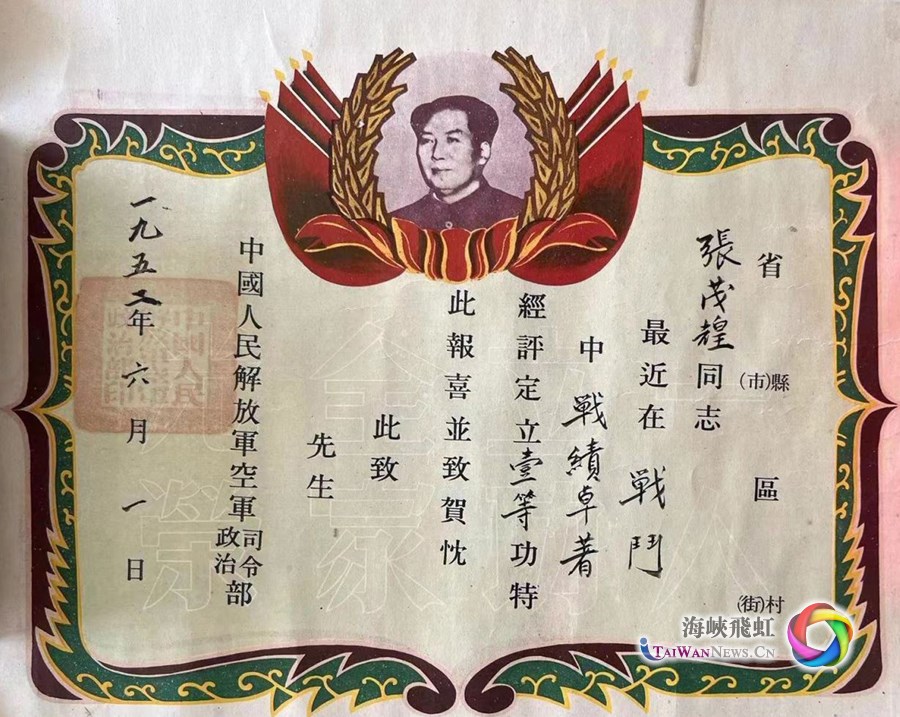 省(市)縣區(街)村
張茂煌同志
最近在戰鬥
中戰績卓著
經評定立壹等功特
此報喜並致賀忱
此致
先生
中國人民解放軍空軍司令政治部
一九五二年六月一日
海峽飛虹
TAIWANNEWS.CN